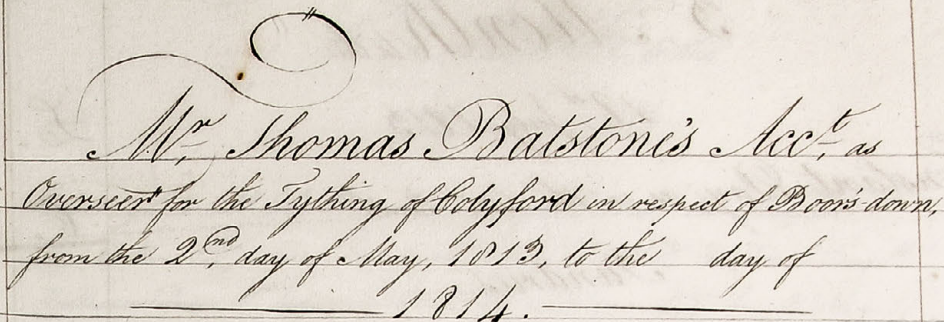 Mr. Thomas Batstone's Acct. as
Overseer for the Tything of Colyford in respect of Boors-down,
from the 2nd. day of May, 1813, to the day of
1814.